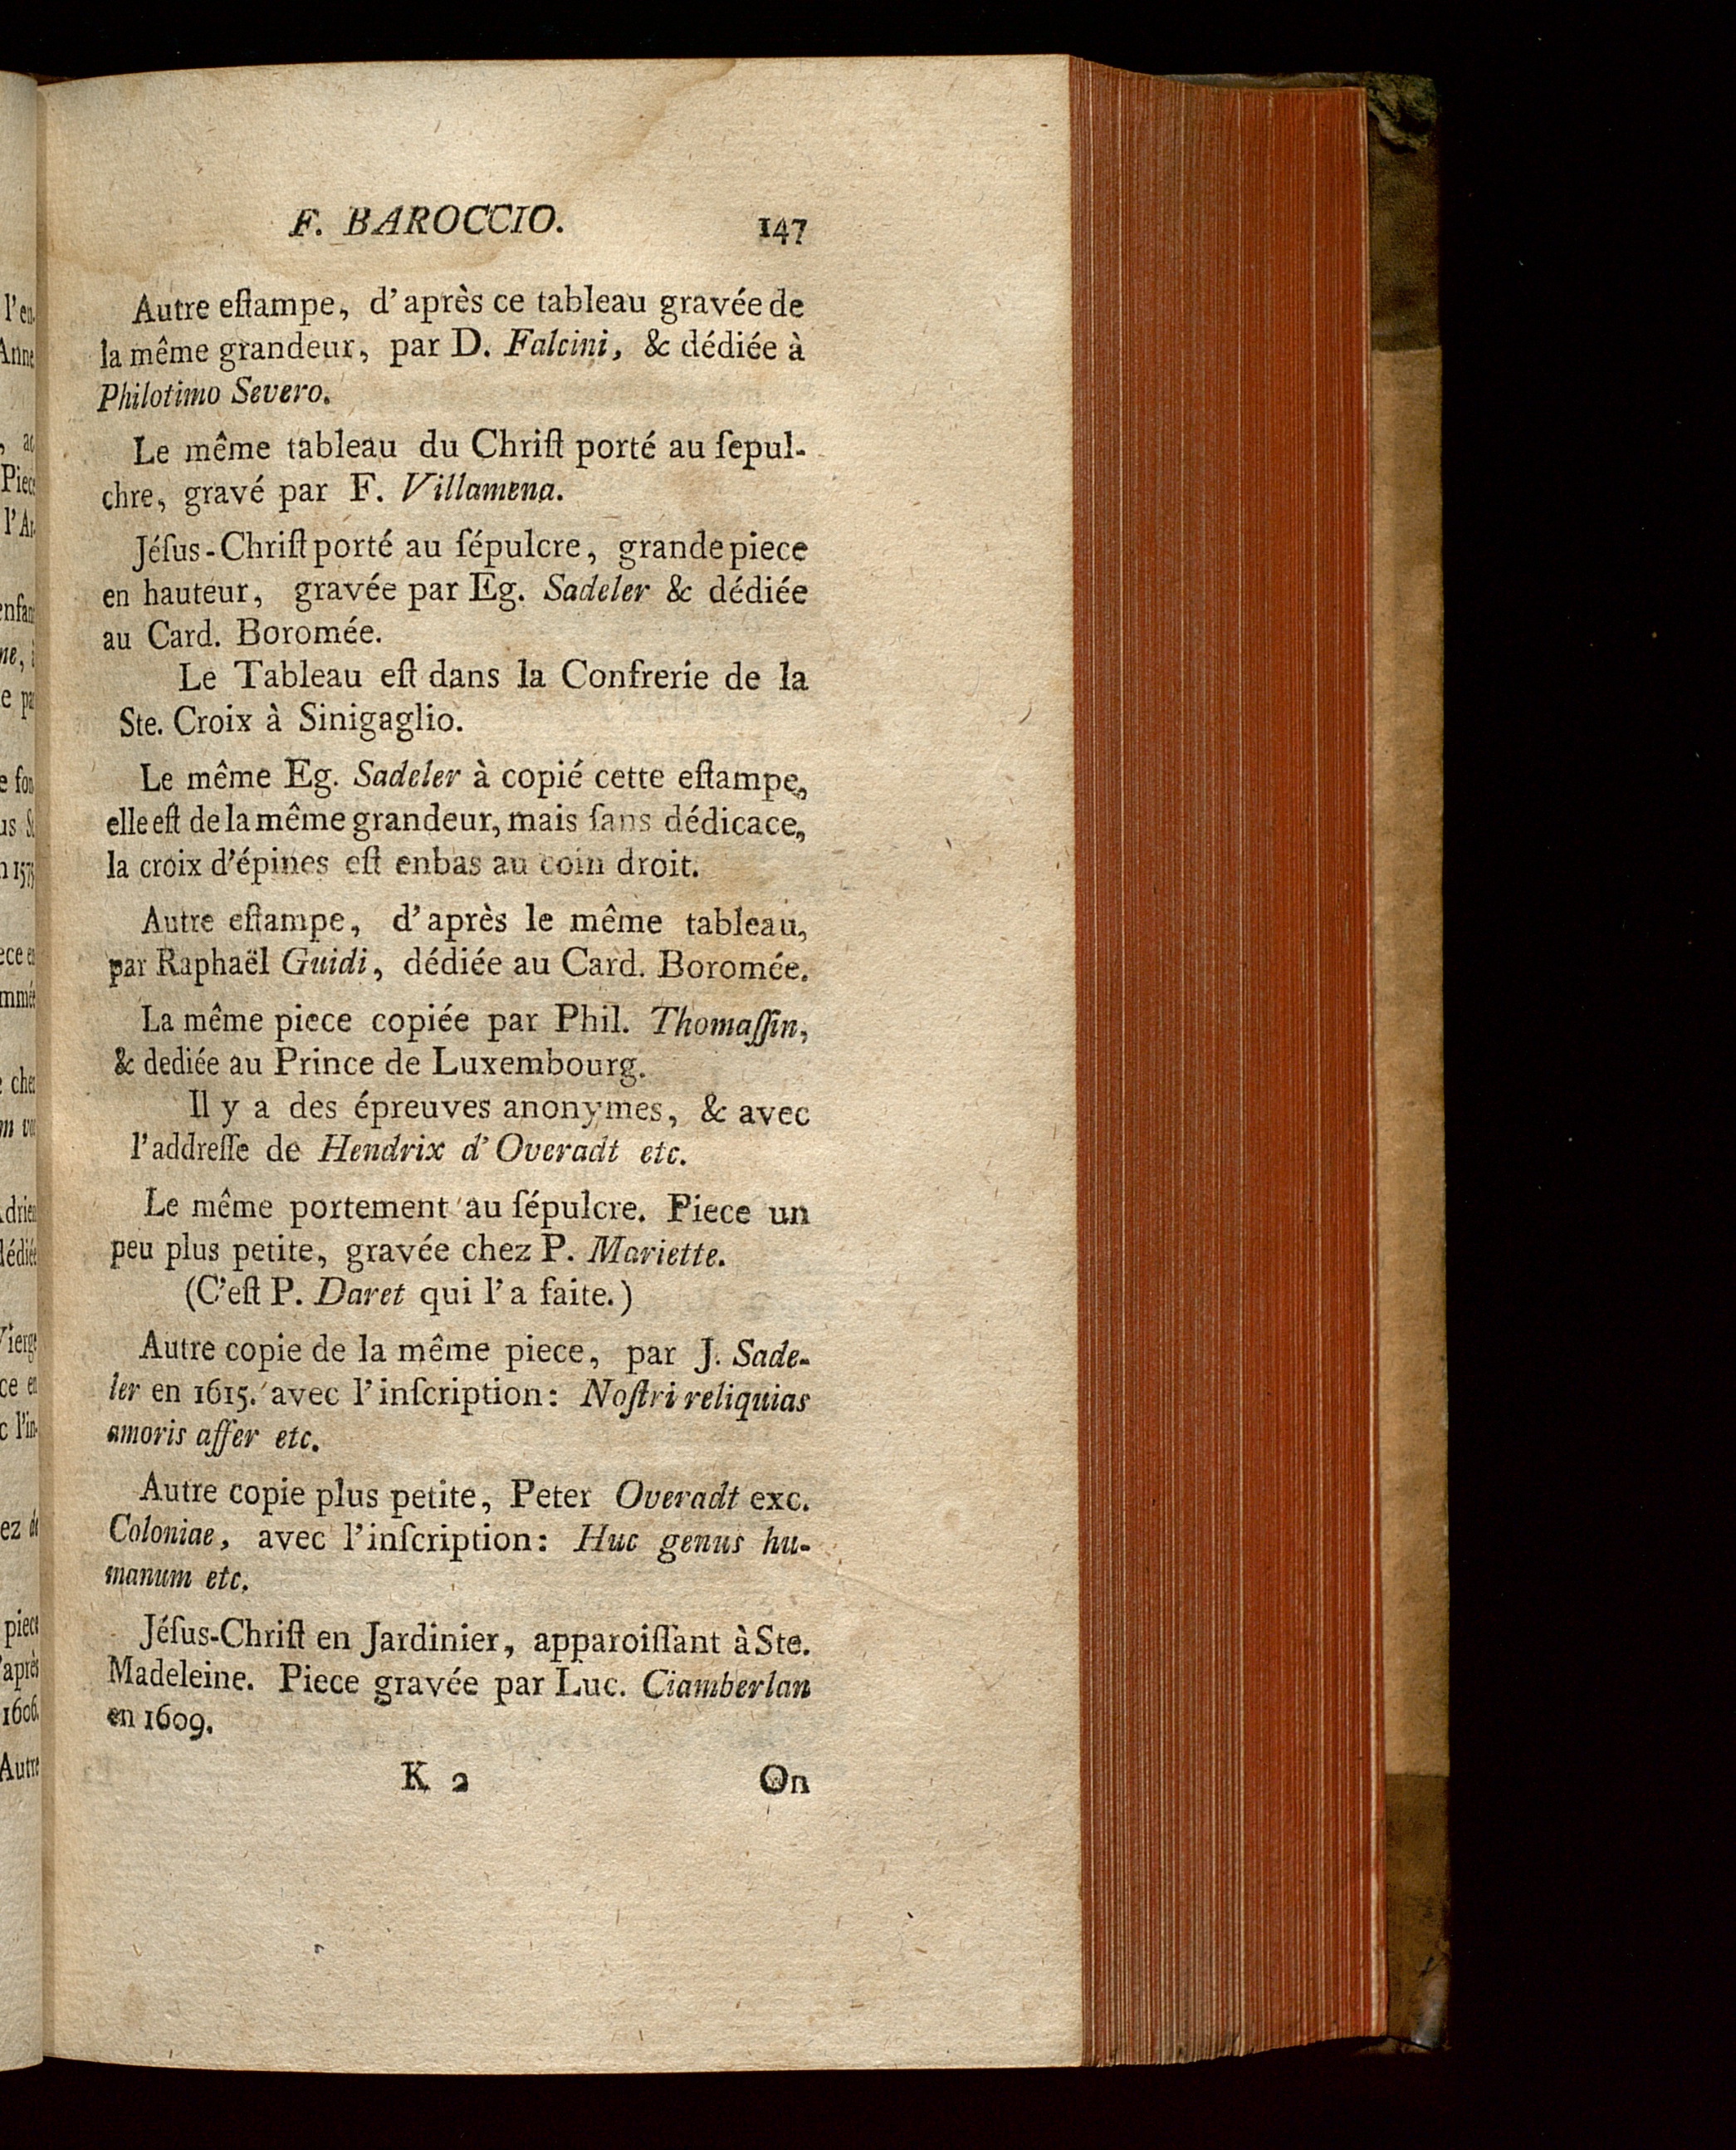 F. BAROCCIO. 147
Autre eſtampe, d'après ce tableau gravée de
la même grandeur, par D. Falcini, & dédiée à
Philotimo Severo.
Le même tableau du Chriſt porté au ſepul-
chre, gravé par F. Villamena.
Jéſus-Chriſt porté au ſépulcre, grande piece
en hauteur, gravée par Eg. Sadeler & dédiée
au Card. Boromée.
Le Tableau eſt dans la Confrerie de la
Ste. Croix à Sinigaglio.
Le même Eg. Sadeler à copié cette eſtampe,
elle eſt de la même grandeur, mais ſans dédicace,
la croix d'épines eſt enbas au coin droit.
Autre eſtampe, d'après le même tableau,
par Raphaël Guidi, dédiée au Card. Boromée.
La même piece copiée par Phil. Thomaſſin,
& dediée au Prince de Luxembourg.
Il y a des épreuves anonymes, & avec
l'addreſſe de Hendrix d'Overadt etc.
Le même portement au ſépulcre. Piece un
peu plus petite, gravée chez P. Mariette.
(C'eſt P. Daret qui l'a faite.)
Autre copie de la même piece, par J. Sade-
ler en 1615. avec l'inſcription: Noſtri reliquias
amoris aſſer etc.
Autre copie plus petite, Peter Overadt exc.
Coloniae, avec l'inſcription: Huc genus hu-
manum etc.
Jéſus-Chriſt en Jardinier, apparoiſſant à Ste.
Madeleine. Piece gravée par Luc. Ciamberlan
en 1609.
K 2 On